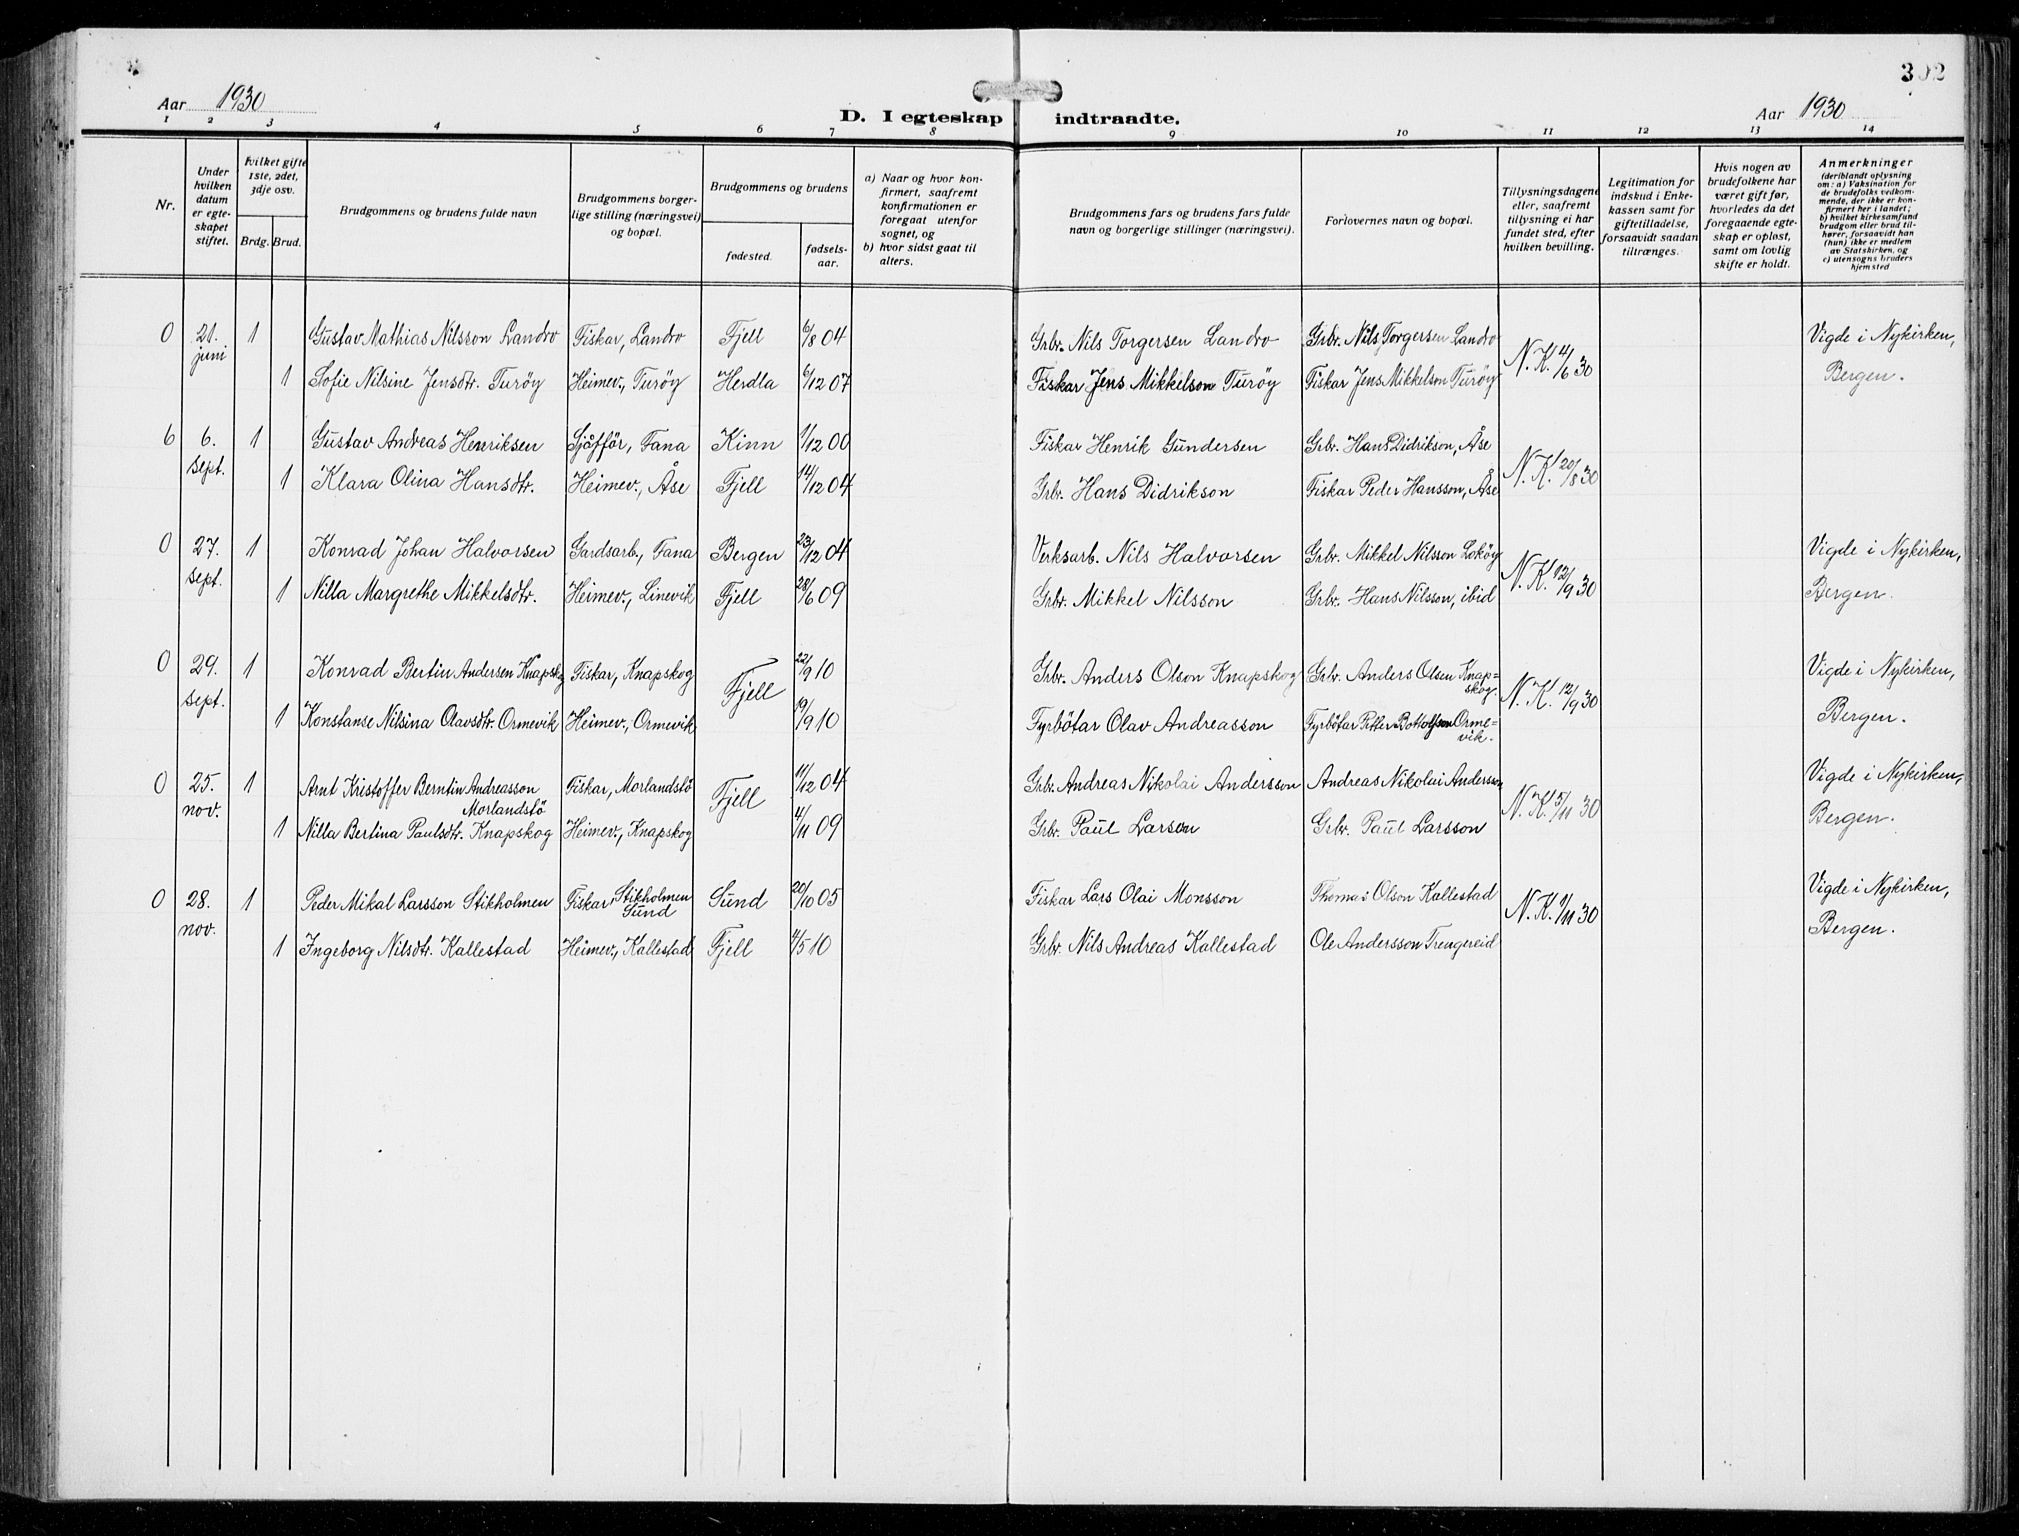 302
Aar 1930
D. I egteskap indtraadte.
Aar 1930
1 2 3 4 5 6 7 8 9 10 11 12 13 14
Nr.
Under hvilken datum er egteskapet stiftet.
Hvilket gifte 1ste, 2det, 3dje osv.
Brdg. Brud.
Brudgommens og brudens fulde navn
Brudgommens borgerlige stilling (næringsvei) og bopæl.
Brudgommens og brudens
fødested.
fødselsaar.
a) Naar og hvor konfirmert, saafremt konfirmationen er foregaat utenfor sognet, og
b) hvor sidst gaat til alters.
Brudgommens fars og brudens fars fulde navn og borgerlige stillinger (næringsvei).
Forlovernes navn og bopæl.
Tillysningsdagene eller, saafremt tillysning ei har fundet sted, efter hvilken bevilling.
Legitimation for indskud i Enkekassen samt for giftetilladelse, forsaavidt saadan tiltrænges.
Hvis nogen av brudefolkene har været gift før, hvorledes da det foregaaende egteskap er opløst, samt om lovlig skifte er holdt.
Anmerkninger (deriblandt oplysning om: a) Vaksination for de brudefolks vedkommende, der ikke er konfirmert her i landet; b) hvilket kirkesamfund brudgom eller brud tilhører, forsaavidt han (hun) ikke er medlem av Statskirken, og c) utensogns bruders hjemsted
0 21. juni 1 Gustav Mathias Nilsson Landro Fiskar, Landro Fjell 6/8 04 Grbr. Nils Torgersen Landro Grbr. Nils Torgersen Landro N.K. 4/6 30 Vigde i Nykirken,
1 Sofie Nilsine Jensdtr. Turöy Heimev., Turöy Herdla 6/12 07 Fiskar Jens Mikkelson Turöy Fiskar Jens Mikkelson Turöy Bergen.
6 6. sept. 1 Gustav Andreas Henriksen Sjåfför, Fana Kinn 1/12 00 Fiskar Henrik Gundersen Grbr. Hans Didrikson, Åse N.K. 20/8 30
1 Klara Olina Hansdtr. Heimev., Åse Fjell 14/12 04 Grbr. Hans Didrikson Fiskar Peder Hansson, Åse
0 27. sept. 1 Konrad Johan Halvorsen Gardsarb., Fana Bergen 23/12 04 Verksarb. Nils Halvorsen Grbr. Mikkel Nilsson Loköy N.K. 12/9 30 Vigde i Nykirken,
1 Nilla Margrethe Mikkelsdtr. Heimev., Linevik Fjell 28/6 09 Grbr. Mikkel Nilsson Grbr. Hans Nilsson, ibid Bergen.
0 29. sept. 1 Konrad Bertin Andersen Knapskog Fiskar, Knapskog Fjell 22/9 10 Grbr. Anders Olson Knapskog Grbr. Anders Olsen Knap=skog. N.K. 12/9 30 Vigde i Nykirken,
1 Konstanse Nilsina Olavsdtr. Ormevik Heimev., Ormevik 19/9 10 Fyrbötar Olav Andreasson Fyrbötar Petter Bottolfson Orme=vik. Bergen.
0 25. nov. 1 Arnt Kristoffer Berntin Andreasson Morlandstö Fiskar, Morlandstö Fjell 11/12 04 Grbr. Andreas Nikolai Andersson Andreas Nikolai Andersson N.K. 5/11 30 Vigde i Nykirken,
1 Nilla Bertina Paulsdtr. Knapskog Heimev., Knapskog 4/11 09 Grbr. Paul Larsen Grbr. Paul Larsson Bergen.
0 28. nov. 1 Peder Mikal Larsson Stikholmen Fiskar, Stikholmen Sund Sund 20/10 05 Fiskar Lars Olai Monsson Thomas Olson Kallestad N.K. 1/11 30 Vigde i Nykirken,
1 Ingeborg Nilsdtr. Kallestad Heimev., Kallestad Fjell 4/5 10 Grbr. Nils Andreas Kallestad Ole Andersson Trengereid Bergen.